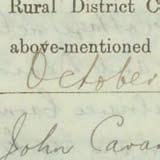 Rural District C
above-mentioned
October
John Cava